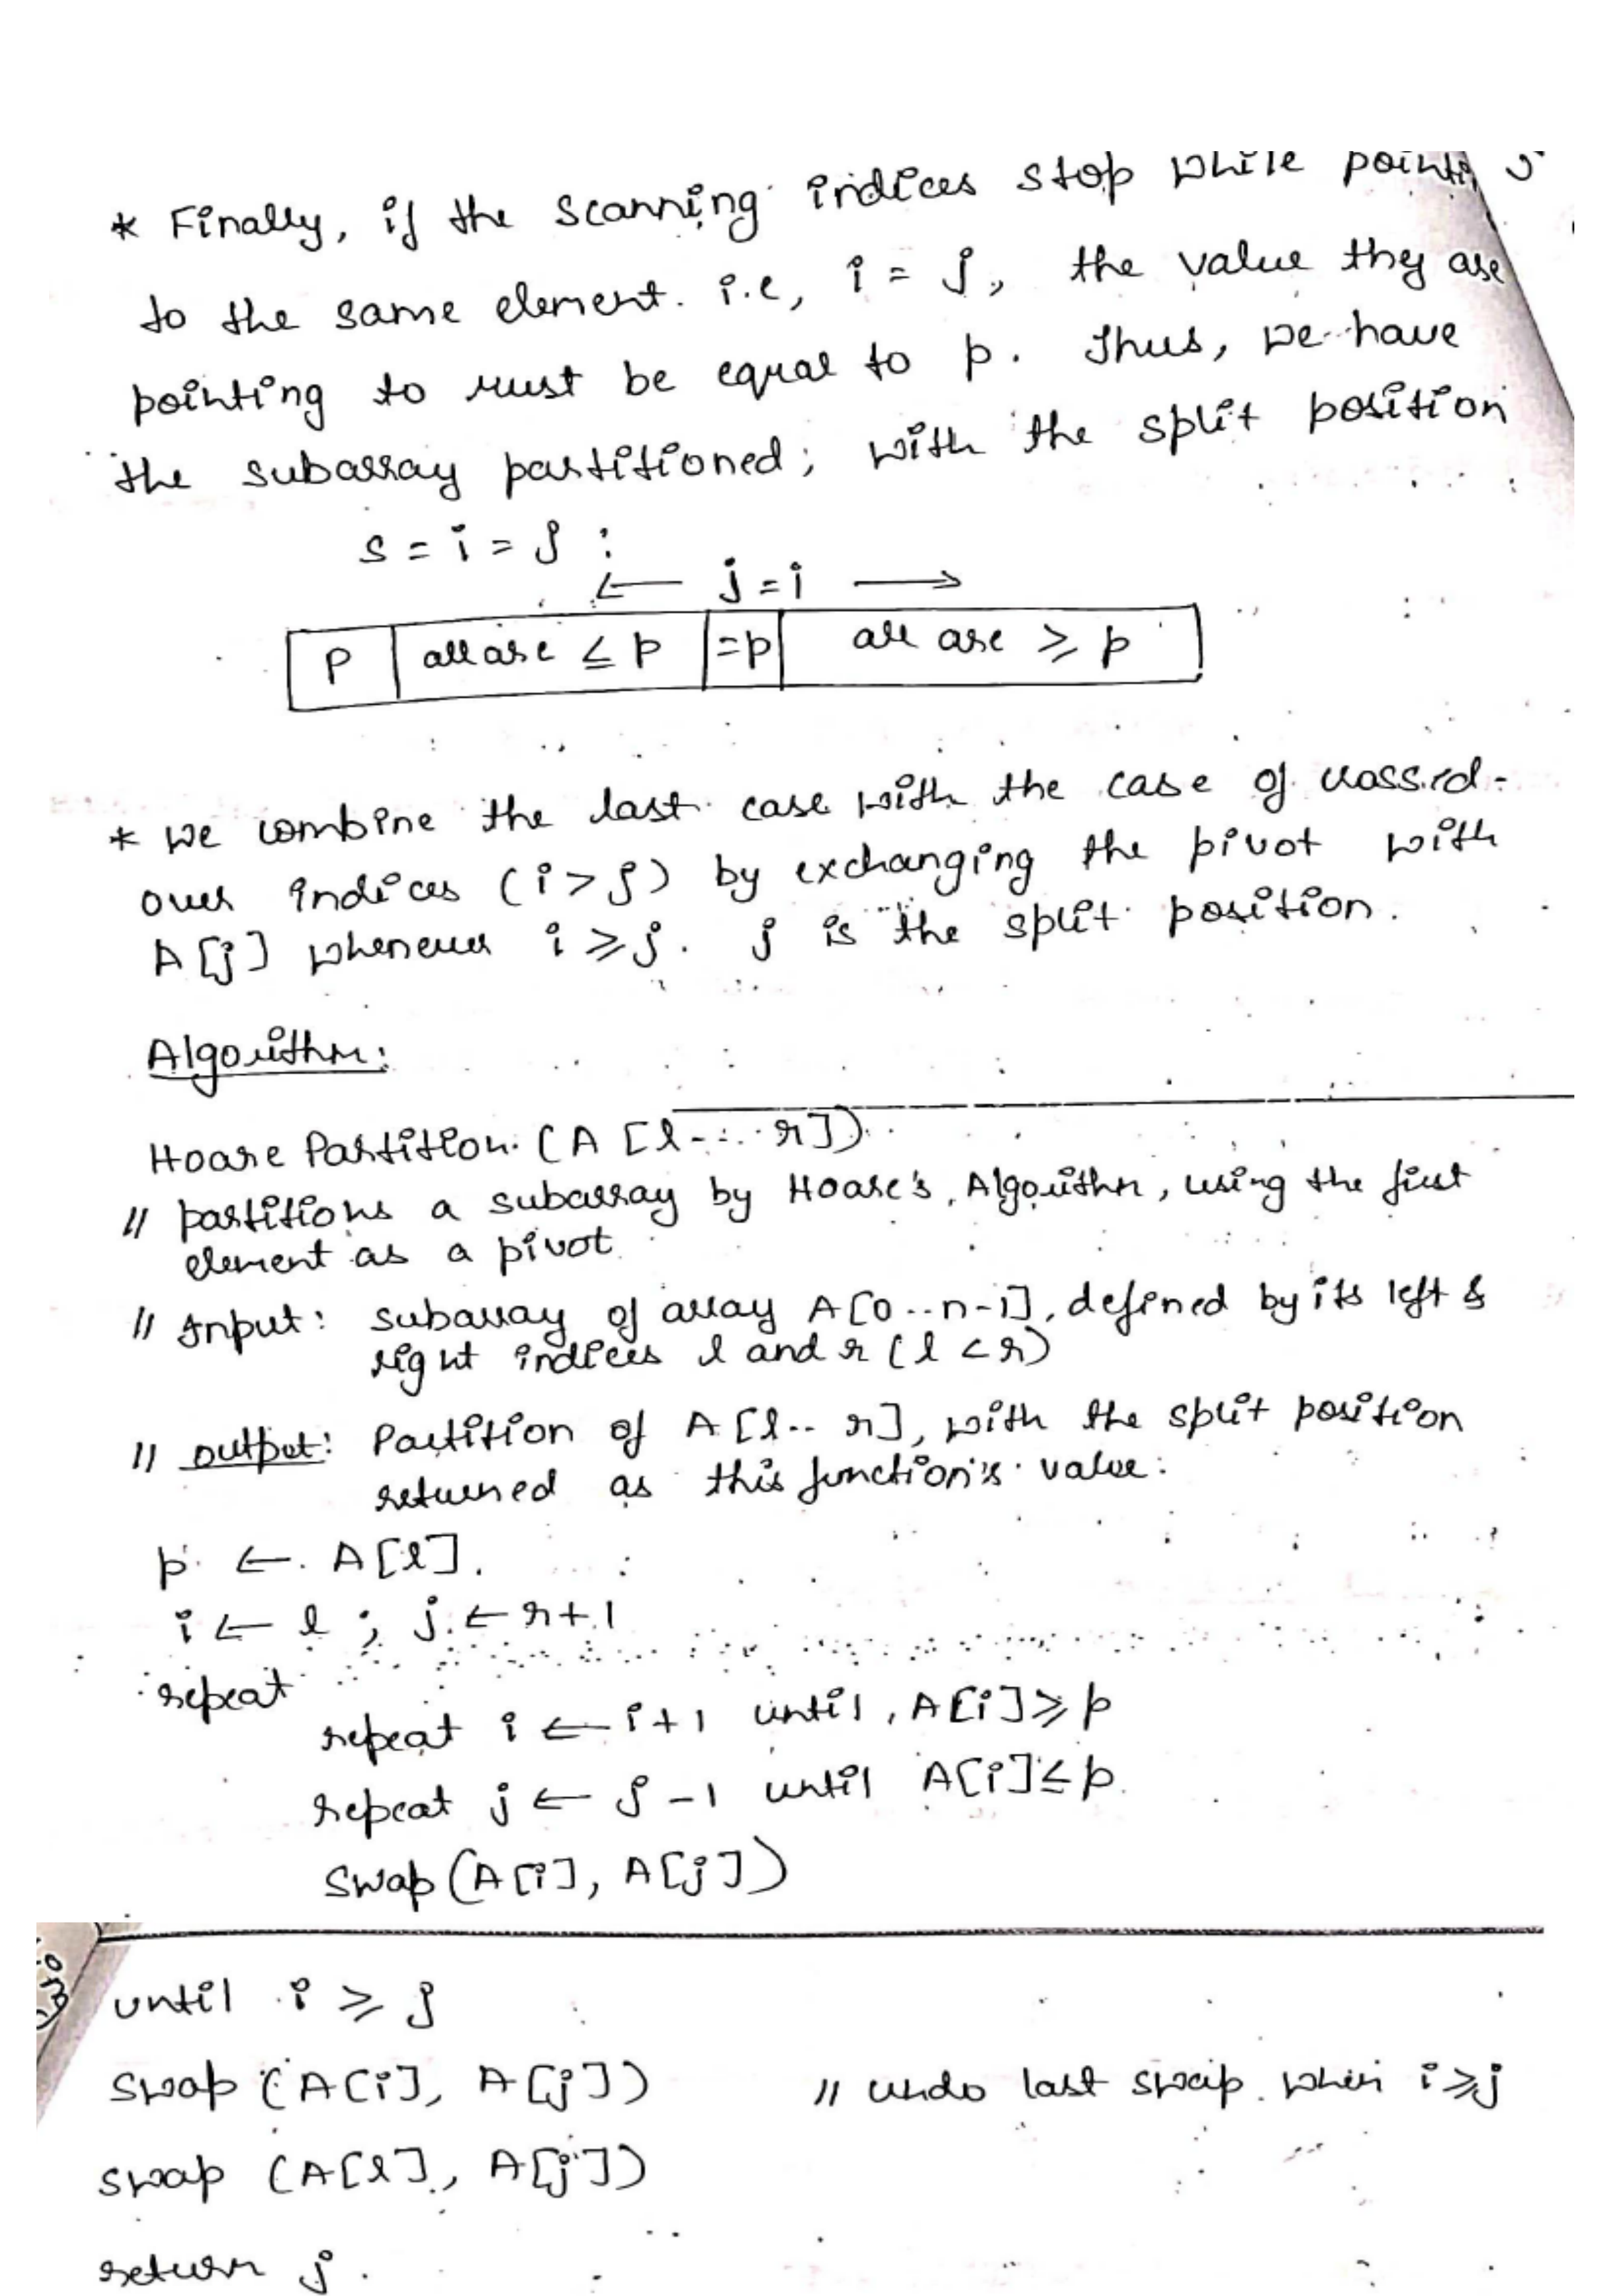 * Finally, if the scanning indices stop while pointing
to the same element. i.e, i = j, the value they are
pointing to must be equal to p. Thus, we have
the subarray partitioned; with the split position
s = i = j :
← j = i →
P | all are ≤ p | =p | all are ≥ p
* we combine the last case with the case of crossed-
over indices (i > j) by exchanging the pivot with
A[j] whenever i ≥ j. j is the split position.
Algorithm:
Hoare Partition (A [l---- r])
// partitions a subarray by Hoare's Algorithm, using the first
element as a pivot
// Input: subarray of array A[0..n-1], defined by its left &
right indices l and r (l < r)
// output: Partition of A [l.. r], with the split position
returned as this function's value.
p ← A[l].
i ← l ; j ← r+1
repeat
repeat i ← i+1 until A[i] ≥ p
repeat j ← j -1 until A[i] ≤ p
swap (A[i], A[j])
until i ≥ j
swap (A[i], A[j]) // undo last swap when i ≥ j
swap (A[l], A[j])
return j.